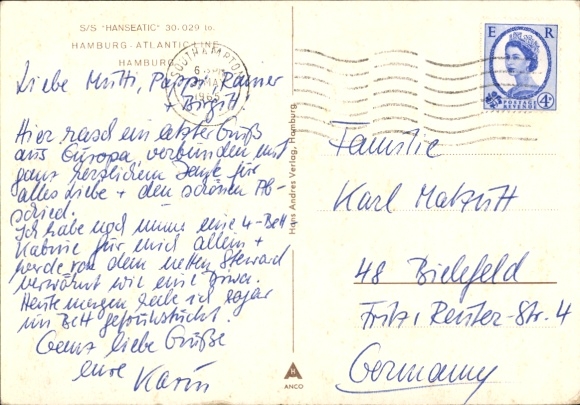 S/S "HANSEATIC" 30.029 to.
HAMBURG-ATLANTIC LINE
HAMBURG
SOUTHAMPTON
1965
E R
POSTAGE
REVENUE
4D
Liebe Mutti, Pappi, Rainer
+ Birgitt!
Hier rasch ein letzter Gruß
aus Europa, verbunden mit
ganz herzlichem Dank für
alles Liebe + den schönen Ab-
schied.
Ich habe noch immer eine 4-Bett
Kabine für mich allein +
werde von dem netten Steward
verwöhnt wie eine Diva.
Heute morgen habe ich sogar
im Bett gefrühstückt.
Ganz liebe Grüße
eure Karin
Hans Andres Verlag, Hamburg
H
ANCO
Familie
Karl
48 Bielefeld
Fritz, Reuter-Str. 4
Germany